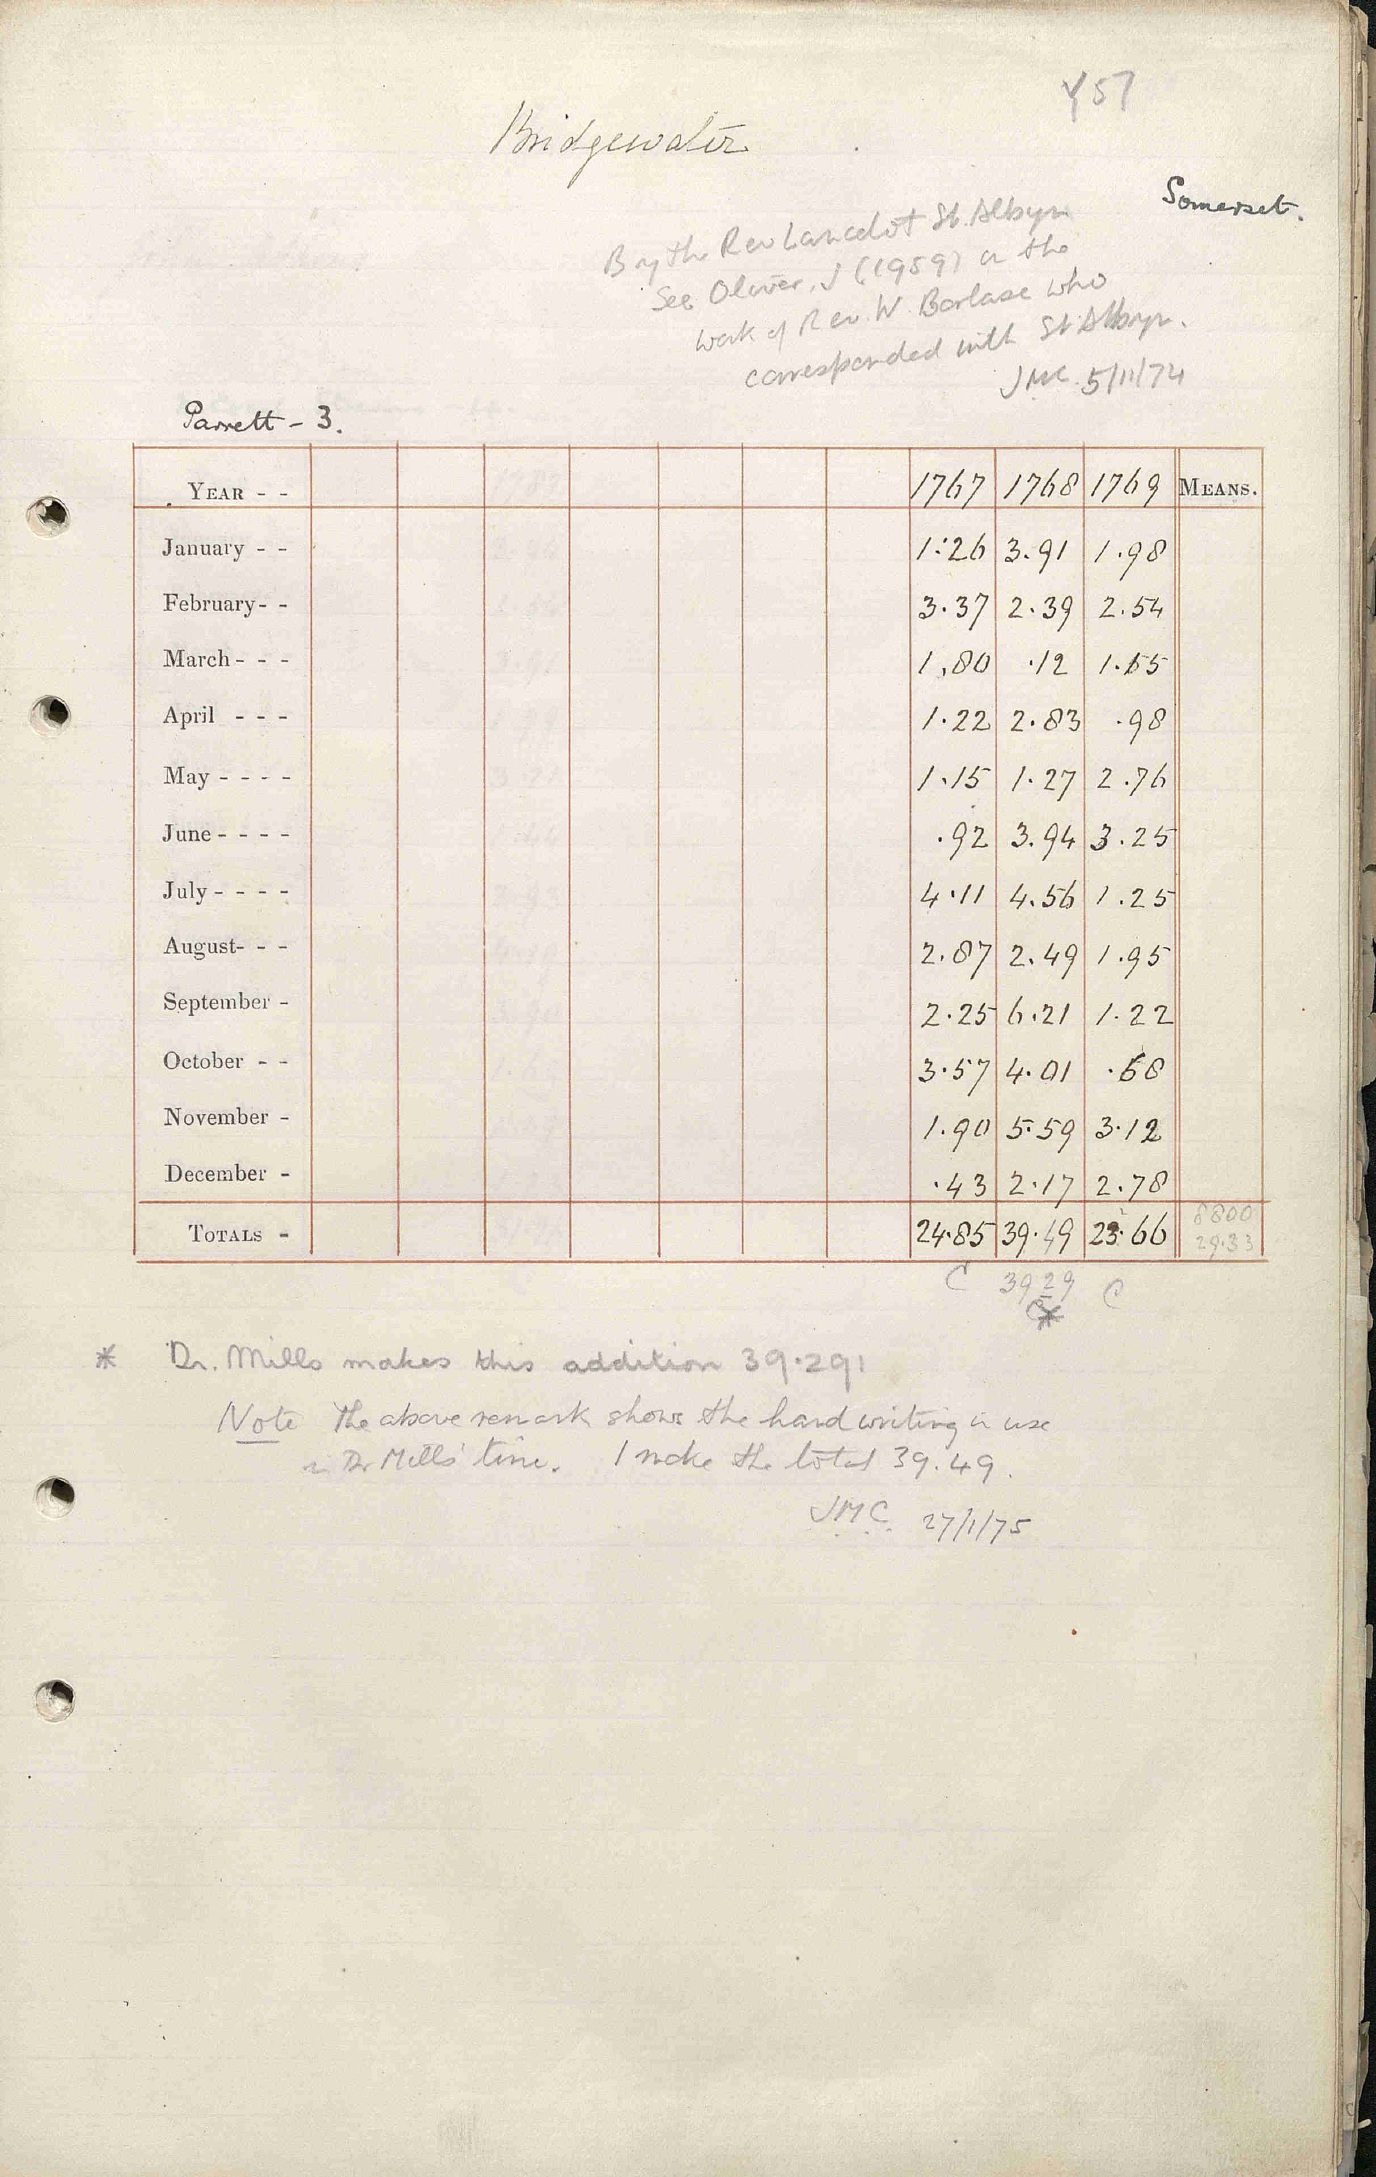 Y57
Bridgewater
Somerset.
By the Rev Lancelot St. Albyn
See Oliver, J (1959) on the
work of Rev. W. Borlase who
corresponded with St. Albyn.
JMC. 5/11/74
Parrett - 3.
YEAR - - 1767 1768 1769 MEANS.
January - - 1.26 3.91 1.98
February- - 3.37 2.39 2.54
March- - - 1.80 .12 1.15
April - - - 1.22 2.83 .98
May - - - - 1.15 1.27 2.76
June - - - - .92 3.94 3.25
July - - - - 4.11 4.56 1.25
August- - - 2.87 2.49 1.95
September - 2.25 6.21 1.22
October - - 3.57 4.01 .68
November - 1.90 5.59 3.12
December - .43 2.17 2.78
TOTALS - 24.85 39.49 23.66 8800
29.33
C 39 29 C
C*
* Dr. Mills makes this addition 39.291
Note The above remark shows the handwriting in use
in Dr Mills' time. I make the total 39.49.
JMC. 27/1/75